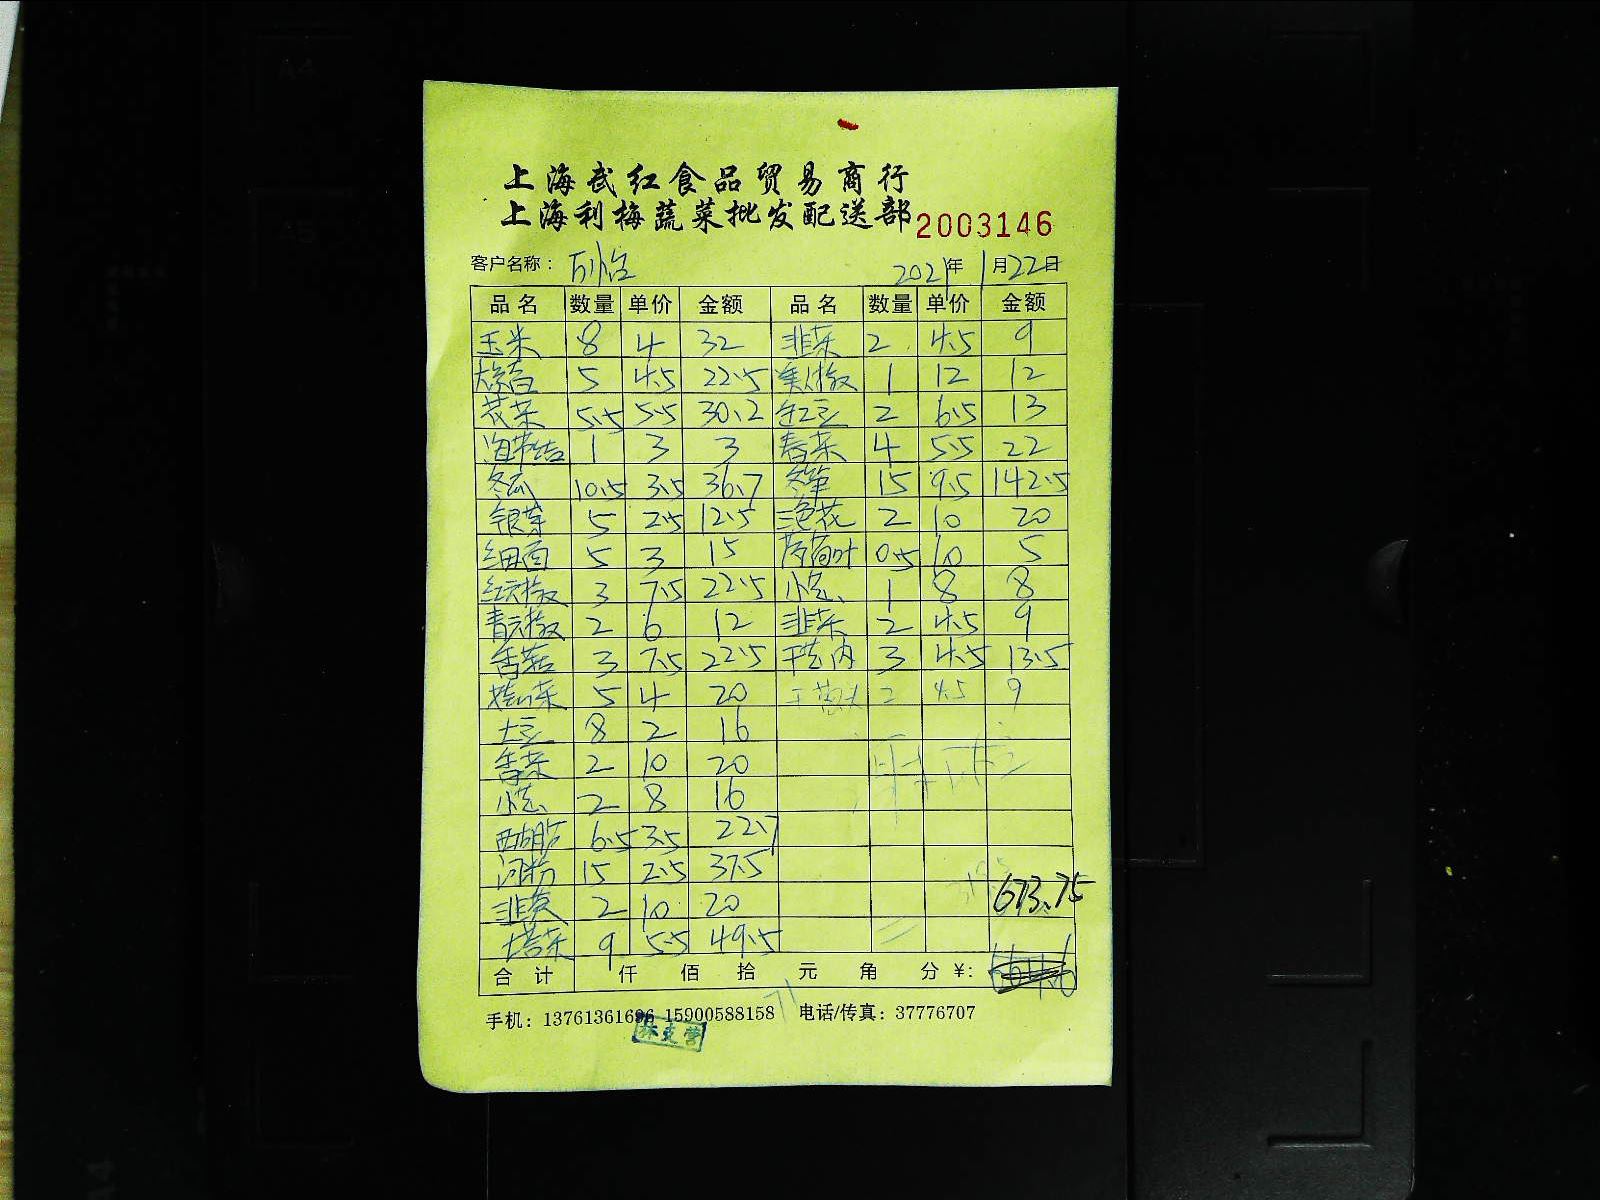 上海武红食品贸易商行
上海利梅蔬菜批发配送部 2003146
客户名称： 2021年1月22日
品名 数量 单价 金额 品名 数量 单价 金额
玉米 8 4 32 韭菜 2 4.5 9
5 4.5 22.5 美人椒 1 12 12
花菜 5.5 5.5 30.2 豇豆 2 6.5 13
海带结 1 3 3 春菜 4 5.5 22
冬瓜 10.5 3.5 36.7 冬笋 15 9.5 142.5
银芽 5 2.5 12.5 三色花 2 10 20
细面 5 3 15 荷叶 0.5 10 5
红尖椒 3 7.5 22.5 小葱 1 8 8
青尖椒 2 6 12 韭菜 2 4.5 9
香菇 3 7.5 22.5 3 4.5 13.5
5 4 20 2 4.5 9
土豆 8 2 16
香菜 2 10 20
小葱 2 8 16
西葫芦 6.5 3.5 22.7
河粉 15 2.5 37.5
韭黄 2 10 20
塔菜 9 5.5 49.5
673.75
合计 仟 佰 拾 元 角 分 ¥:
手机：13761361696 15900588158 电话/传真：37776707